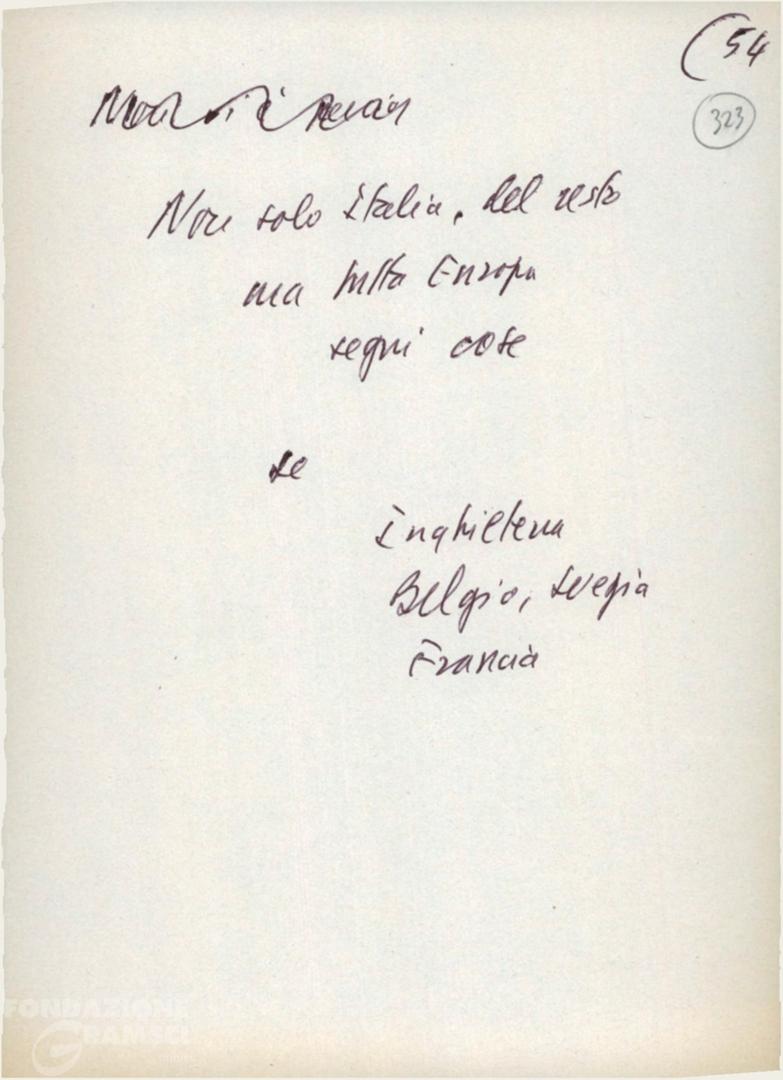 (54
323
Non solo Italia, del resto
ma tutta Europa
segni cose
se
Inghilterra
Belgio, Svegia
Francia
FONDAZIONE
GRAMSCI